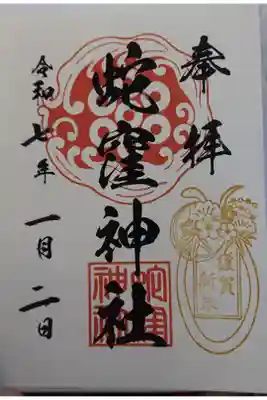 奉拝
謹賀
新年
蛇窪神社
蛇窪
神社
令和七年一月二日